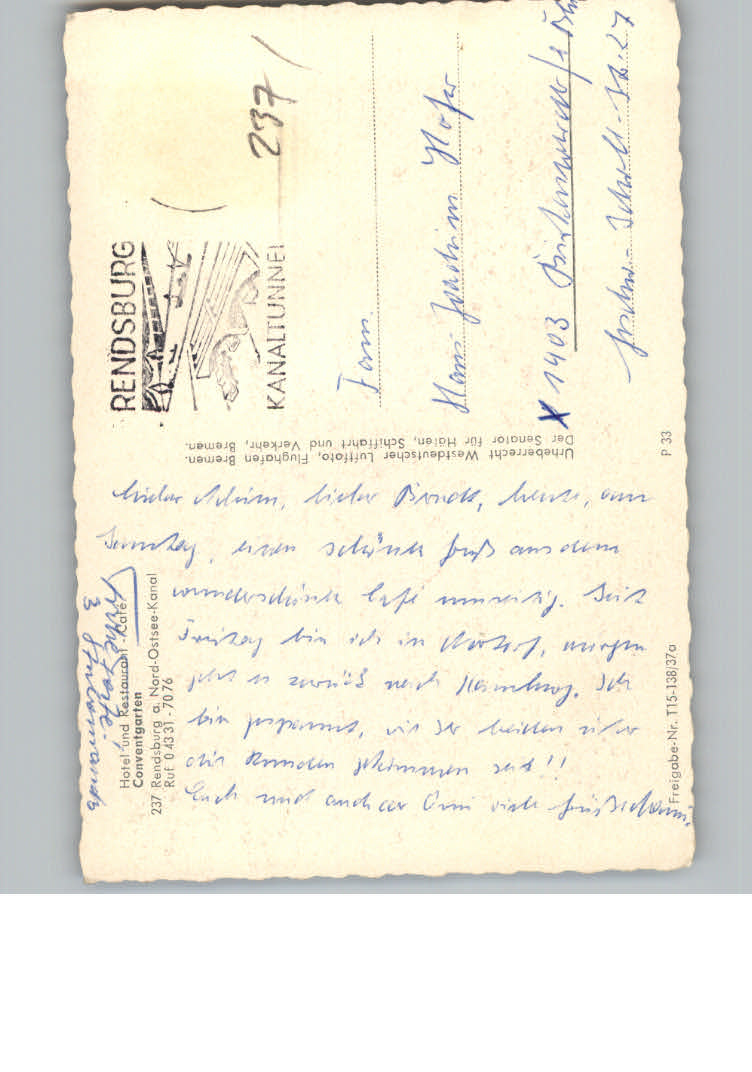 RENDSBURG
KANALTUNNEL
237
Fam.
Hans-Joachim Hofer
X 1403
Urheberrecht Westdeutscher Luftfoto, Flughafen Bremen.
Der Senator für Häfen, Schiffahrt und Verkehr, Bremen.
P 33
Hotel und Restaurant - Café
Conventgarten
237 Rendsburg a. Nord-Ostsee-Kanal
Ruf 0 43 31 - 70 76
Lieber Achim, lieber Bernd, heute, am
Sonntag, einen schönen Gruß aus dem
wunderschönen Café umseitig. Seit
Freitag bin ich in Nortorf, morgen
geht es zurück nach Hamburg. Ich
bin gespannt, wie Ihr beiden über
die Runden gekommen seid!!
Euch und auch der Omi viele Grüße
Freigabe-Nr. T15-138/37a